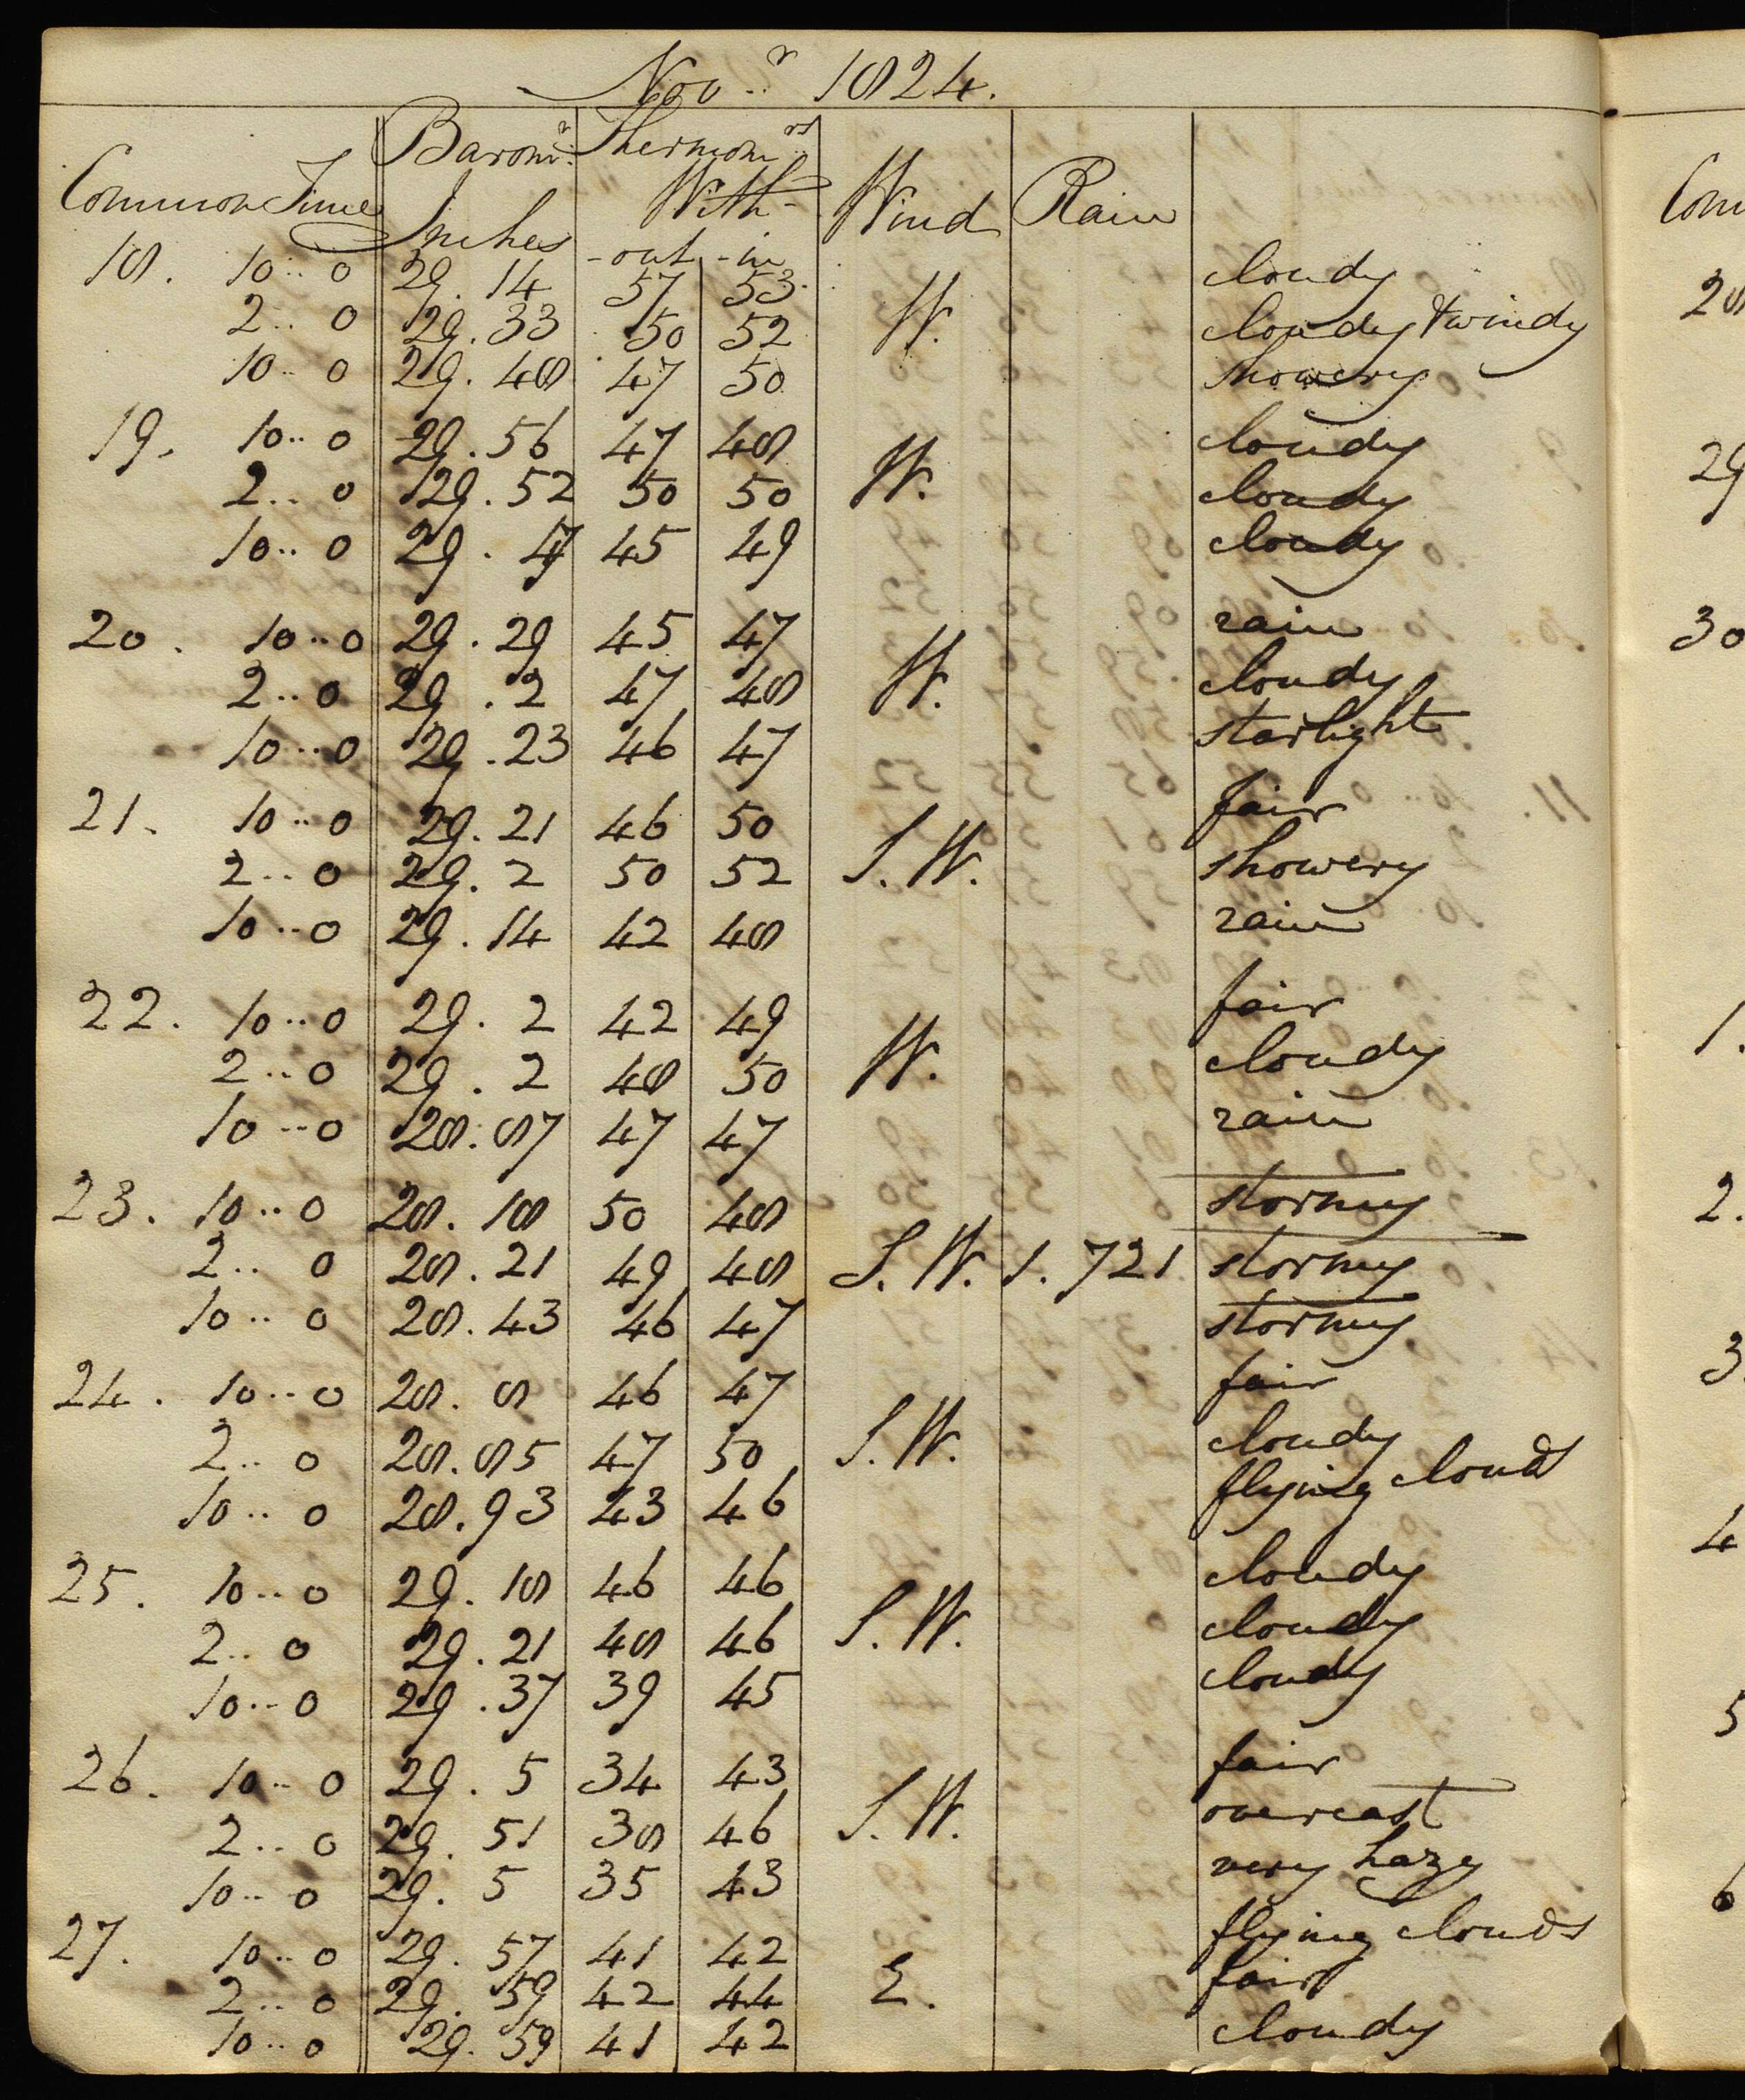 Nov.r 1824.
Barom.r Thermom.rs
Common Time Inches With- Wind Rain
-out -in
18. 10..0 29.14 57 53 cloudy
2..0 29.33 50 52 W. cloudy & windy
10..0 29.48 47 50 showery
19. 10..0 29.56 47 48 cloudy
2..0 29.52 50 50 W. cloudy
10..0 29.47 45 49 cloudy
20. 10..0 29.29 45 47 rain
2..0 29.2 47 48 W. cloudy
10..0 29.23 46 47 starlight
21. 10..0 29.21 46 50 fair
2..0 29.2 50 52 S.W. showery
10..0 29.14 42 48 rain
22. 10..0 29.2 42 49 fair
2..0 29.2 48 50 W. cloudy
10..0 28.87 47 47 rain
23. 10..0 28.18 50 48 stormy
2..0 28.21 49 48 S.W. 1.721 stormy
10..0 28.43 46 47 stormy
24. 10..0 28.8 46 47 fair
2..0 28.85 47 50 S.W. cloudy
10..0 28.93 43 46 flying clouds
25. 10..0 29.18 46 46 cloudy
2..0 29.21 48 46 S.W. cloudy
10..0 29.37 39 45 cloudy
26. 10..0 29.5 34 43 fair
2..0 29.51 38 46 S.W. overcast
10..0 29.5 35 43 very hazy
27. 10..0 29.57 41 42 flying clouds
2..0 29.59 42 44 E. fair
10..0 29.59 41 42 cloudy
Com
28
29
30
1.
2.
3.
4
5
6